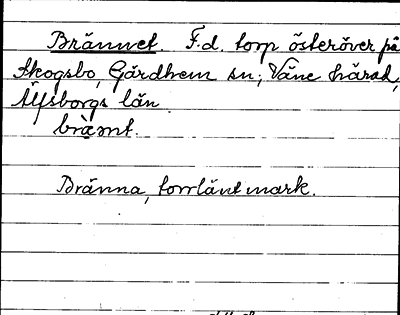 Brännet. F.d. torp österöver på
Skogsbo, Gärdhem sn; Väne härad,
Älfsborgs län
Bränna, torrlänt mark.